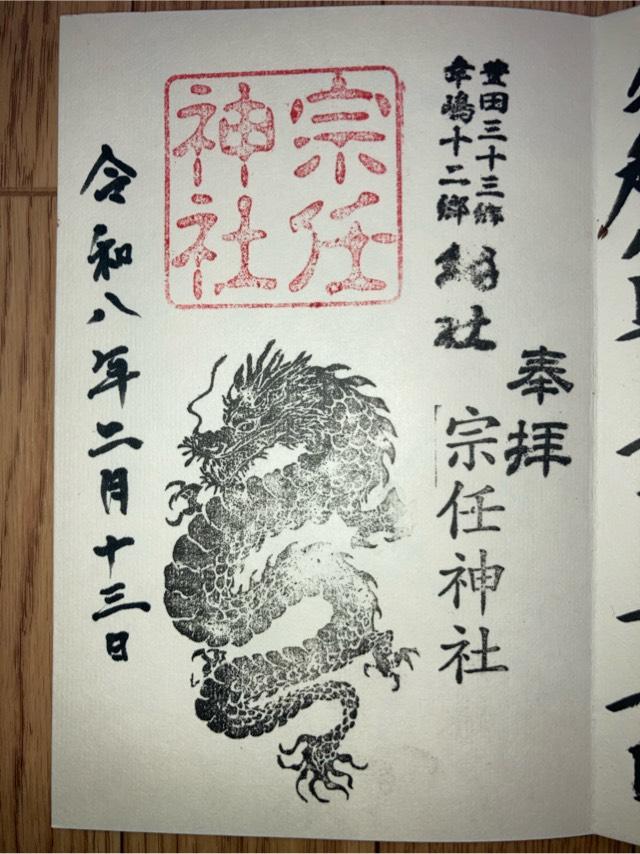 奉拝
豊田三十三郷
幸嶋十二郷
総社
宗任神社
宗任
神社
令和八年二月十三日